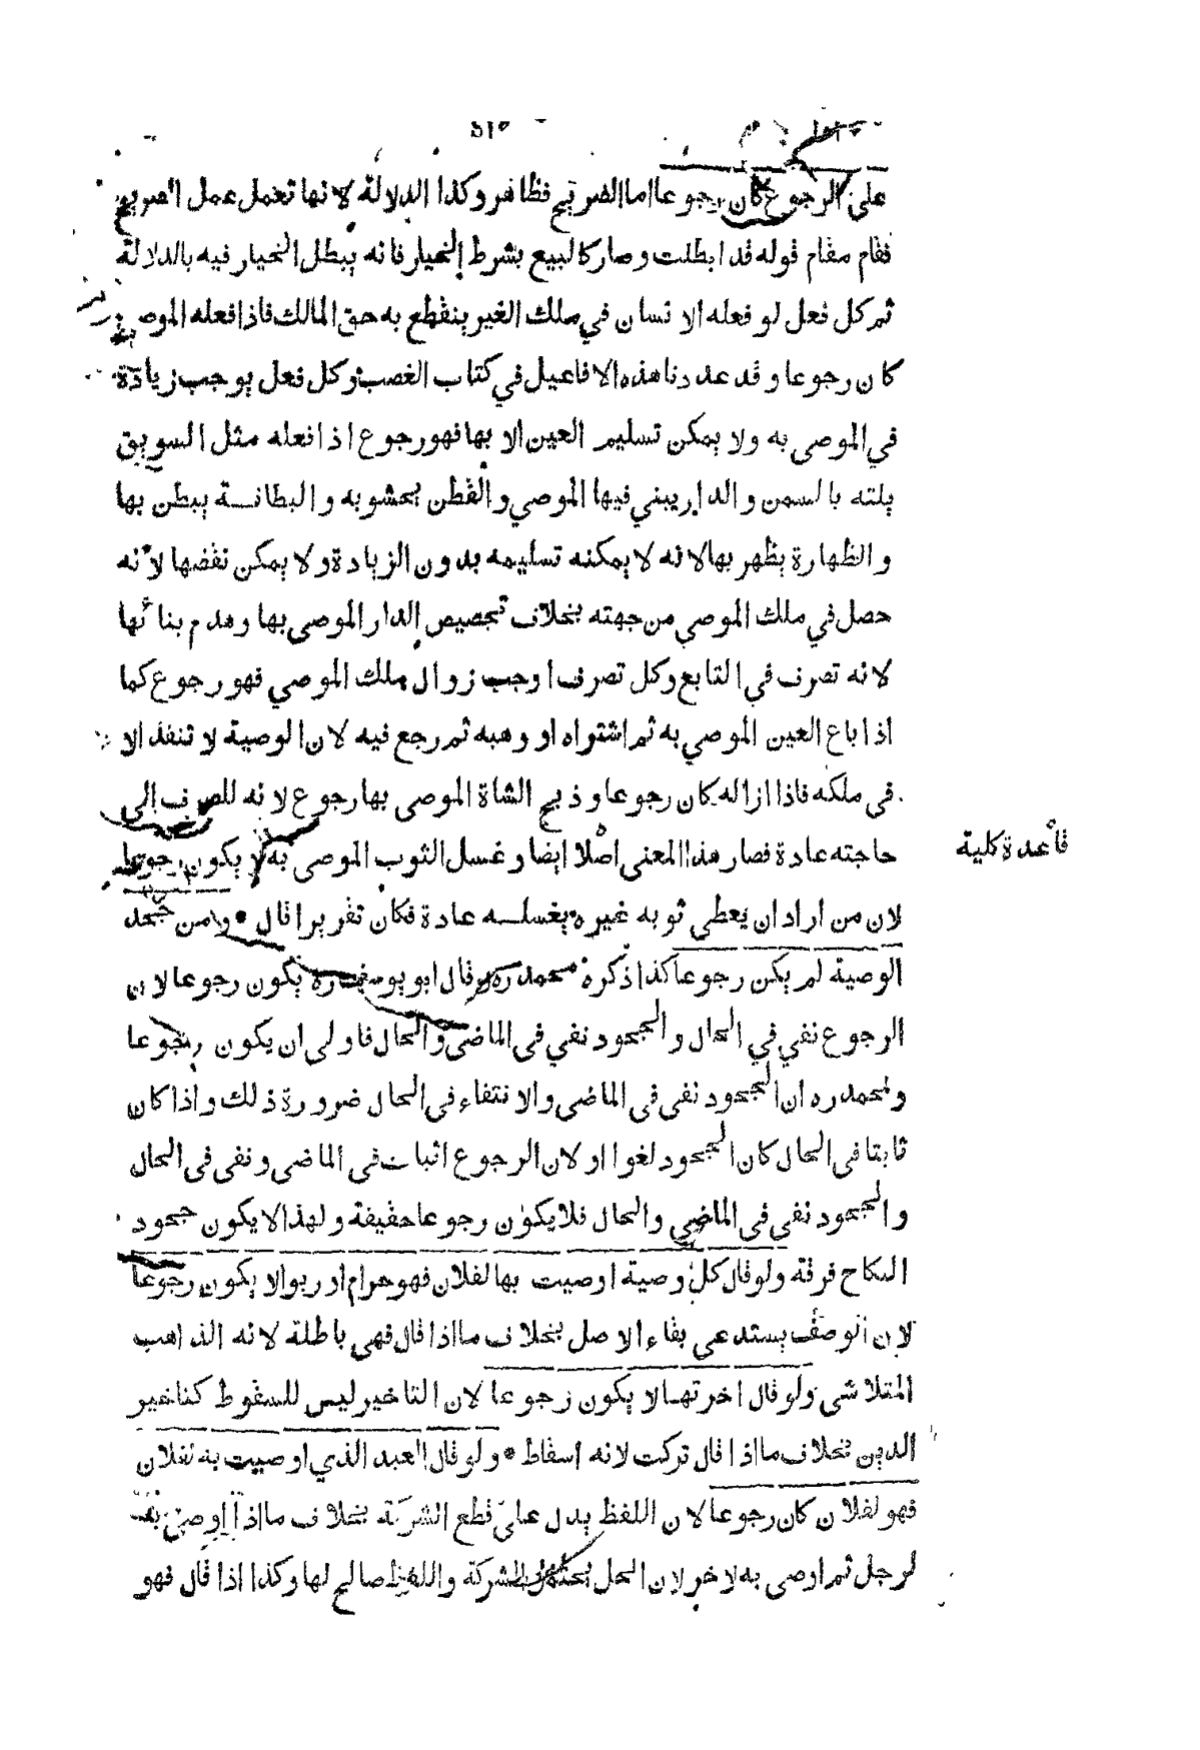 على الرجوع كان رجوعا اما الصريح فظاهر وكذا الدلالة لانها تعمل عمل الصريح
فقام مقام قوله قد ابطلت وصار كالبيع بشرط الخيار فانه يبطل الخيار فيه بالدلالة
ثم كل فعل لو فعله الانسان في ملك الغير ينقطع به حق المالك فاذا فعله الموصي
كان رجوعا وقد عددنا هذه الافاعيل في كتاب الغصب وكل فعل يوجب زيادة
في الموصى به ولا يمكن تسليم العين الا بها فهو رجوع اذا فعله مثل السويق
يلته بالسمن والدار يبني فيها الموصي والقطن يحشو به والبطانة يبطن بها
والظهارة يظهر بها لانه لا يمكنه تسليمه بدون الزيادة ولا يمكن نقضها لانه
حصل في ملك الموصي من جهته بخلاف تجصيص الدار الموصى بها وهدم بنائها
لانه تصرف في التابع وكل تصرف اوجب زوال ملك الموصي فهو رجوع كما
اذا باع العين الموصى به ثم اشتراه او وهبه ثم رجع فيه لان الوصية لا تنفذ الا
في ملكه فاذا ازاله كان رجوعا وذبح الشاة الموصى بها رجوع لانه للصرف الى
حاجته عادة فصار هذا المعنى اصلا ايضا وغسل الثوب الموصى به لا يكون رجوعا
قاعدة كلية
لان من اراد ان يعطي ثوبه غيره يغسله عادة فكان تقريرا قال * ومن جحد
الوصية لم يكن رجوعا كذا ذكره محمد ره وقال ابو يوسف ره يكون رجوعا لان
الرجوع نفي في الحال والجحود نفي في الماضي والحال فاولى ان يكون رجوعا
ولمحمد ره ان الجحود نفي في الماضي والانتفاء في الحال ضرورة ذلك واذا كان
ثابتا في الحال كان الجحود لغوا او لان الرجوع اثبات في الماضي ونفي في الحال
والجحود نفي في الماضي والحال فلا يكون رجوعا حقيقة ولهذا لا يكون جحود
النكاح فرقة ولو قال كل وصية اوصيت بها لفلان فهو حرام او ربوا لا يكون رجوعا
لان الوصف يستدعي بقاء الاصل بخلاف ما اذا قال فهي باطلة لانه الذاهب
المتلاشي ولو قال اخرتها لا يكون رجوعا لان التاخير ليس للسقوط كتاخير
الدين بخلاف ما اذا قال تركت لانه اسقاط * ولو قال العبد الذي اوصيت به لفلان
فهو لفلان كان رجوعا لان اللفظ يدل على قطع الشركة بخلاف ما اذا اوصى به
لرجل ثم اوصى به لاخر لان المحل يحتمل الشركة واللفظ صالح لها وكذا اذا قال فهو